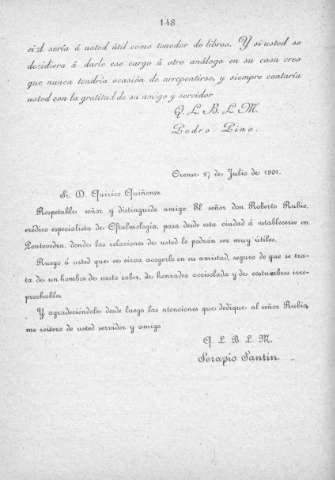 148
él sería á usted útil como tenedor de libros. Y si usted se
decidiera á darle ese cargo ú otro análogo en su casa creo
que nunca tendría ocasión de arrepentirse, y siempre contaría
usted con la gratitud de su amigo y servidor
Q. L. B. L. M.
Pedro Pino.
Orense 27 de Julio de 1901.
Sr. D. Quirico Quiñones.
Respetable señor y distinguido amigo: El señor don Roberto Rubio,
médico especialista de Oftalmología, pasa desde esta ciudad á establecerse en
Pontevedra, donde las relaciones de usted le podrán ser muy útiles.
Ruego á usted que se sirva acogerle en su amistad, seguro de que se tra-
ta de un hombre de vasto saber, de honradez acrisolada y de costumbres irre-
prochables.
Y agradeciéndole desde luego las atenciones que dedique al señor Rubio,
me reitero de usted servidor y amigo
Q. L. B. L. M.
Serapio Santín